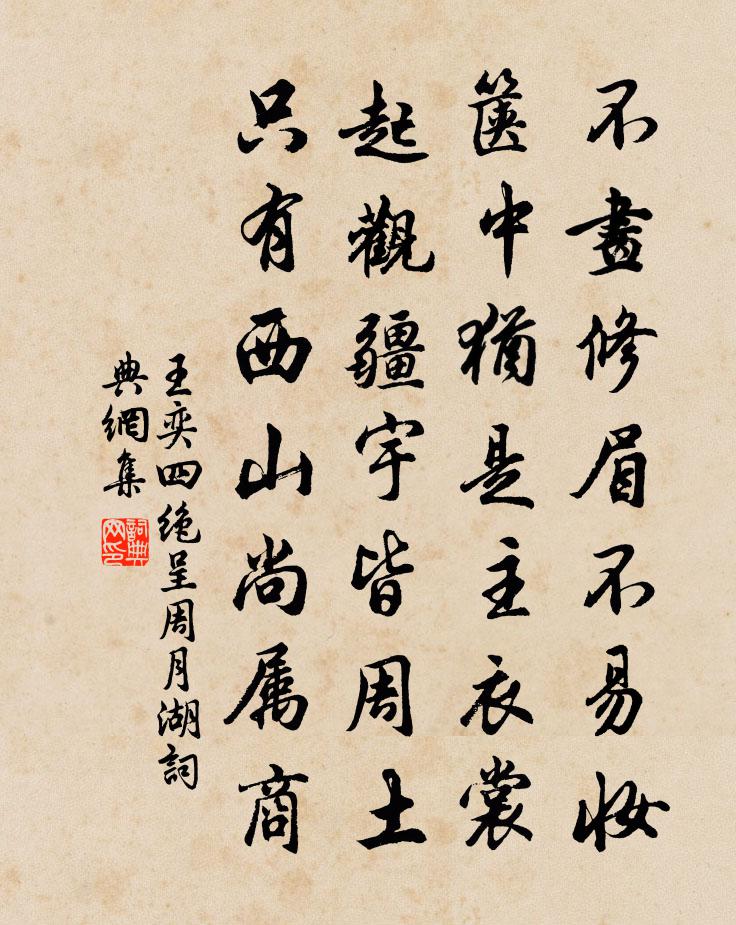 不畫修眉不易妝
篋中猶是主衣裳
起觀疆宇皆周土
只有西山尚属商
王奕四绝呈周月湖詞
典網集
詞典
网印